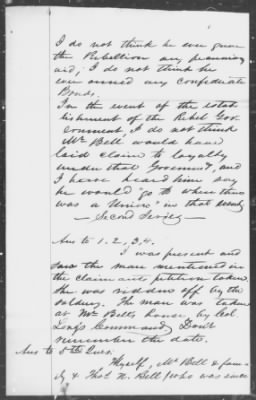 I do not think he ever gave
the Rebellion any pecuniary
aid, I do not think he
ever owned any Confederate
Bonds.
In the event of the estab
lishment of the Rebel Gov
ernment, I do not think
Mr Bell would have
laid claim to loyalty
under that Government, and
I have heard him say
he would go to where there
was a "Union" in that event
— Second Series —
Ans to 1. 2, 3, 4.
I was present and
saw the mare mentioned in
the claimants petition taken.
She was ridden off by the
soldiery. The mare was taken
at Mr Bells house by Col
Long's Command, Don't
remember the date.
Ans to 5th Ques.
Myself, Mr Bell & fami
ly & Thos. N. Bell (who was since